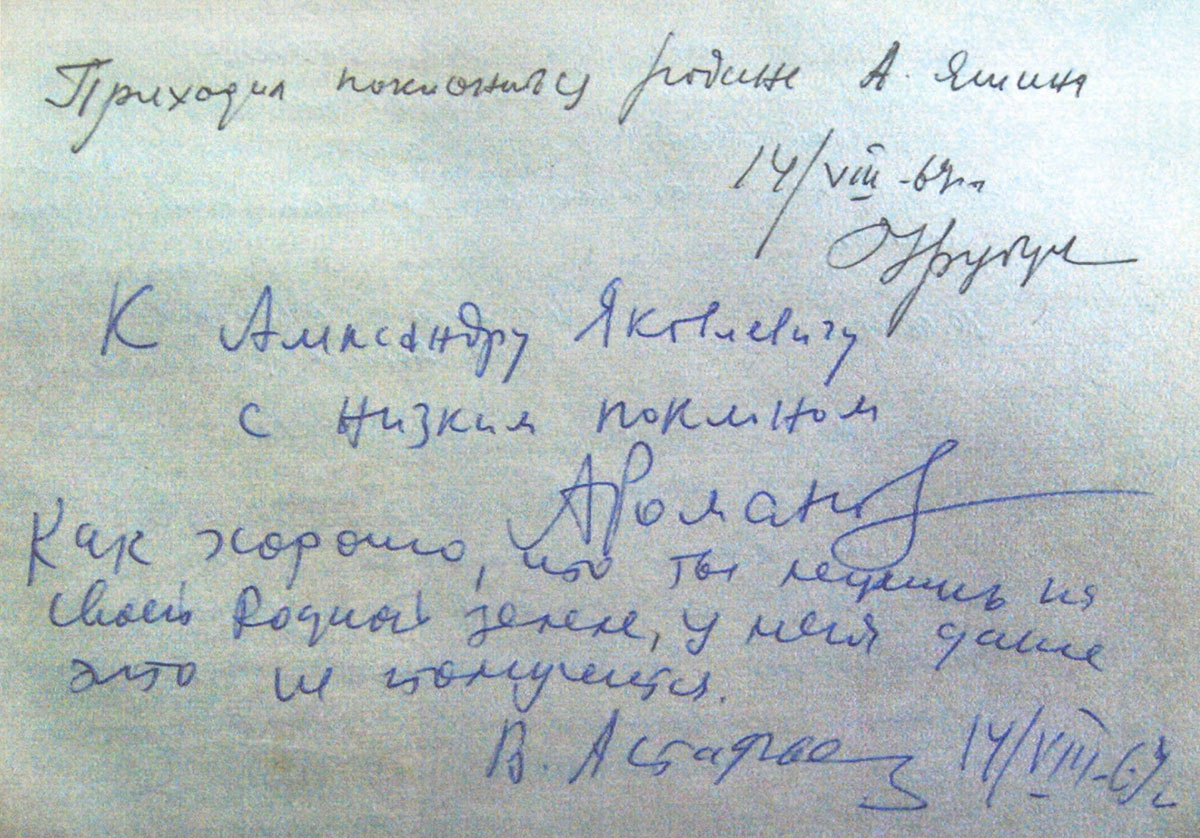 Приходил поклониться родине А. Яшина
14/VIII-69г.
К Александру Яковлевичу
с низким поклоном
АРоманов
Как хорошо, что ты лежишь на
своей Родной земле, у меня даже
это не получится.
В. Астафьев 14/VIII-69г